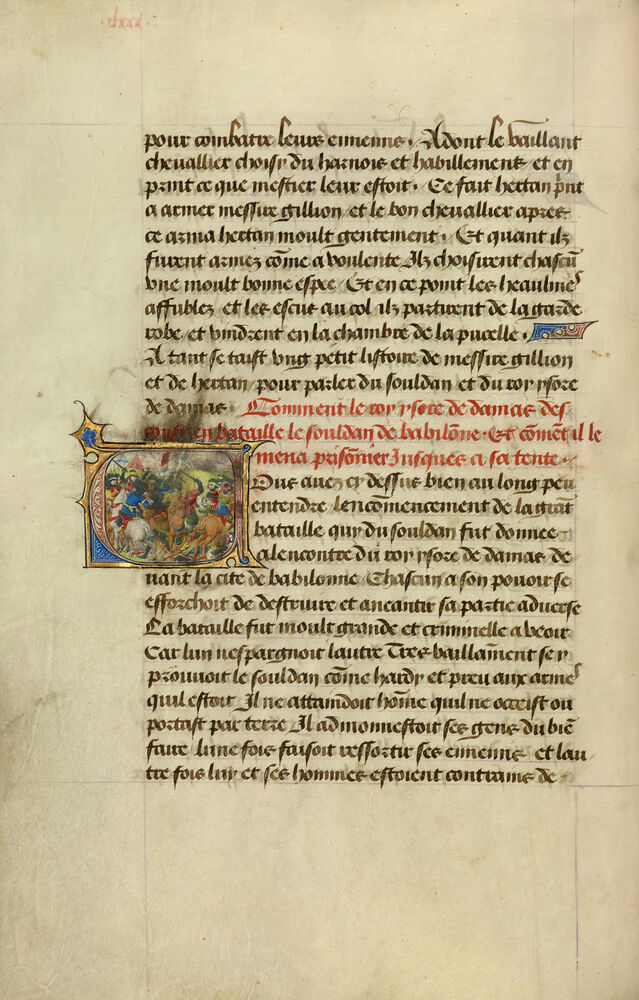 .lxxx.
pour combatre leurs ennemis. Adont le vaillant
chevallier choisy du harnois et habillement et en
print ce que mestier leur estoit. Ce fait hertan pñt
a armer messire gillion et le bon chevallier apres
ce arma hertan moult gentement. Et quant ilz
furent armez cõme a voulente Ilz choisirent chascũ
vne moult bonne espee Et en ce point les heaulmes
affublez et les escus au col ilz partirent de la garde
robe et vindrent en la chambre de la pucelle.
A tant se taist vng petit listoire de messire gillion
et de hertan pour parler du souldan et du roy ysore
de damas. Comment le roy ysore de damas des
confi en bataille le souldan de babilõne. Et cõmẽt il le
mena prisonnier Jusques a sa tente.
Ous auez cy dessus bien au long peu
entendre lencõmencement de la grãt
bataille quy du souldan fut donnee
alencontre du roy ysore de damas de
uant la cite de babilonne Chascun a son pouoir se
efforchoit de destruire et aneantir sa partie aduerse
La bataille fut moult grande et criminelle a veoir
Car lun nespargnoit lautre Tres vaillãment se y
prouuoit le souldan cõme hardy et preu aux armes
quil estoit Il ne attaindoit hõme quil ne occist ou
portast par terre Il admonnestoit ses gens du biẽ
faire lune fois faisoit ressortir ses ennemis et lau
tre fois luy et ses hommes estoient contrains de